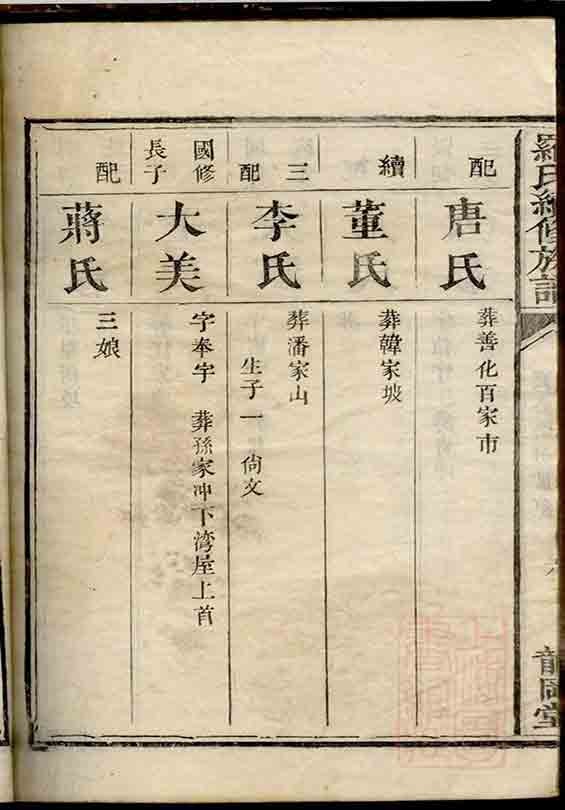 羅氏續修族譜
龍岡堂
配
唐氏
葬善化百家市
續
董氏
葬韓家坡
三
配
李氏
葬潘家山
生子一 尙文
國修
長子
大美
字奉宇 葬孫家冲下湾屋上首
配
蔣氏
三娘